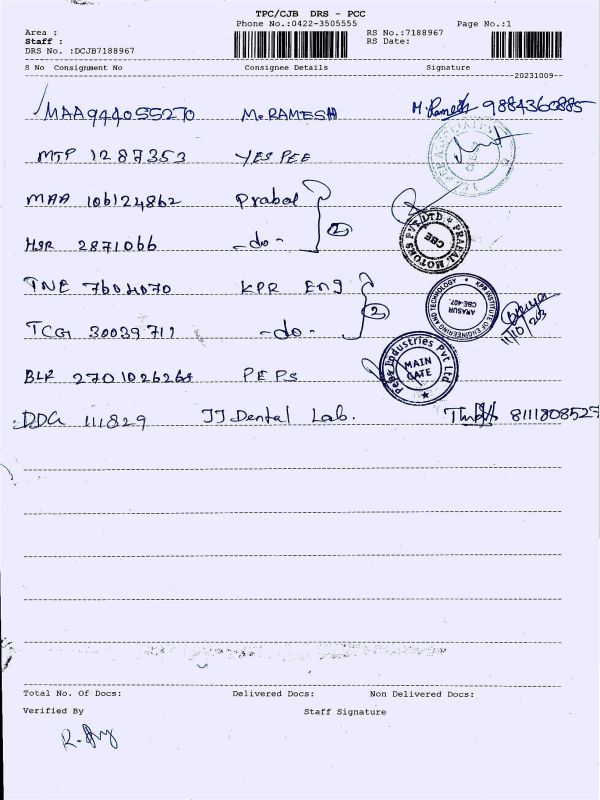 TPC/CJB DRS - PCC
Phone No.:0422-3505555 Page No.:1
Area : RS No.:7188967
Staff : RS Date:
DRS No. :DCJB7188967
S No Consignment No Consignee Details Signature
20231009--
MAA944055270 M. RAMESH M. Ramesh 9884360885
MTP 1287353 YES PEE
MAA 106124862 Prabal
2
HSR 2871066 -do-
PRABAL MOTORS PVT LTD CBE
TNE 7604070 KPR Eng
2
KPR INSTITUTE OF ENGINEERING AND TECHNOLOGY ARASUR CBE-407.
TCG 30039711 -do-
BLR 2701026268 PEPS
Peps Industries Pvt Ltd MAIN GATE
DDG 111829 JJ Dental Lab. 8111808527
Total No. Of Docs: Delivered Docs: Non Delivered Docs:
Verified By Staff Signature